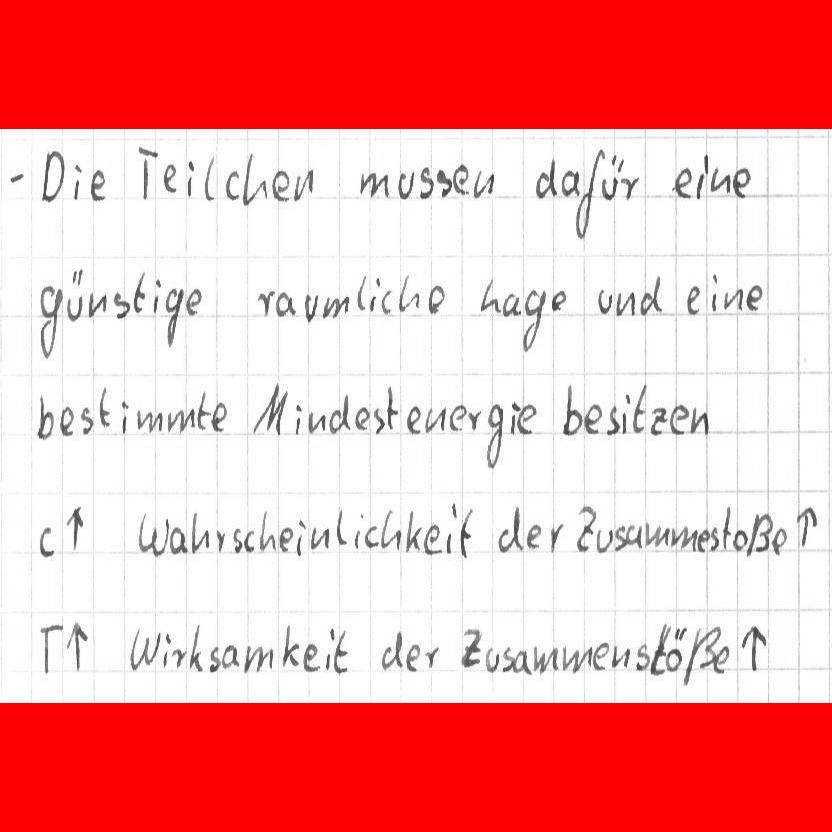 - Die Teilchen mussen dafür eine
günstige raumliche Lage und eine
bestimmte Mindestenergie besitzen
c↑ Wahrscheinlichkeit der Zusammestoße↑
T↑ Wirksamkeit der Zusammenstöße↑